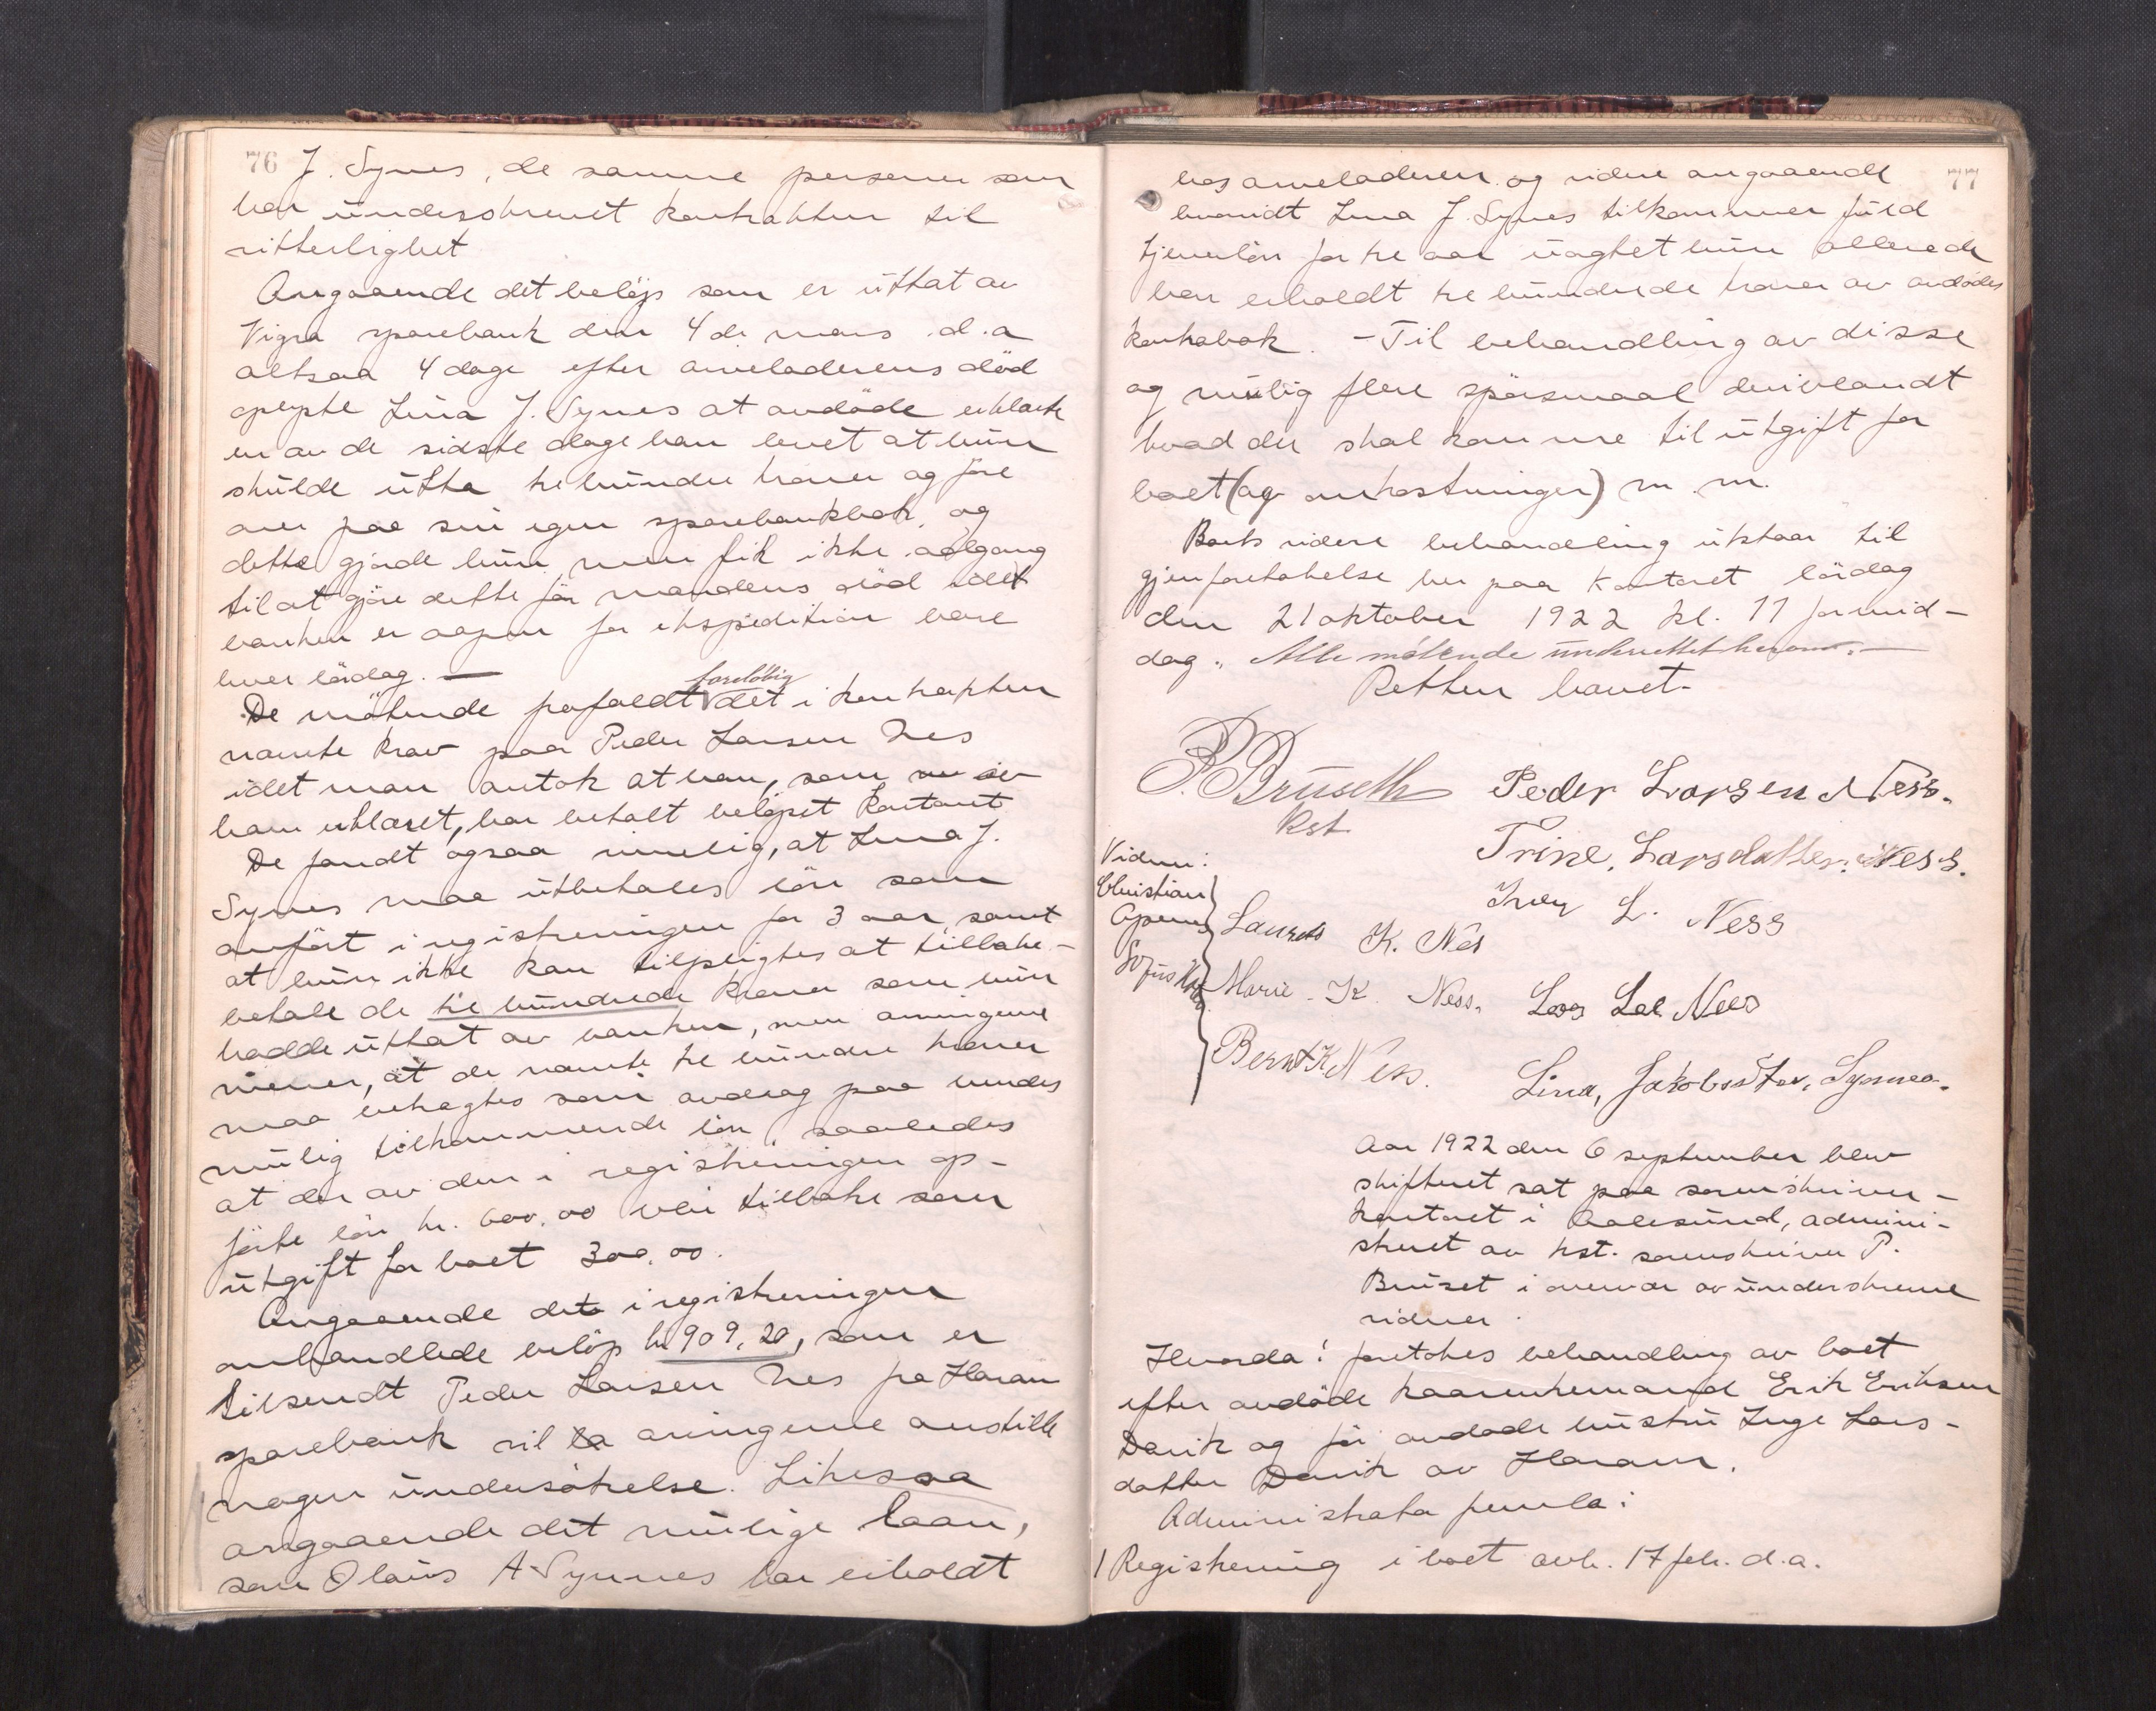 76
J. Synes, de samme personer som
har underskrevet kontrakten til
vitterlighet
Angaaende det beløp som er uttat av
Vigra sparebank den 4de mars d.a
altsaa 4 dage efter arveladerens död
oplyste Lina J. Synes at avdöde erklærte
en av de sidste dage han levet at hun
skulde utta tre hundre kroner og före
over paa sin egen sparebankbok, og
dette gjorde hun, men fik ikke adgang
til at gjöre dette för mandens död idet
banken er aapen for ekspedition bare
hver lördag. —
De mötende frafaldt foreløbig det i kontrakten
nævnte krav paa Peder Larsen Nes
idet man antok at han, som av
ham erklæret, har betalt belöpet kontant
De fandt ogsaa rimelig, at Lina J.
Synes maa utbetales lön som
anfört i registreringen for 3 aar, samt
at hun ikke kan tilpligtes at tilbake-
betale de tre hundrede kroner som hun
hadde uttat av banken, men arvingene
mener, at de nævnte tre hundre kroner
maa betragtes som avdrag paa hendes
mulig tilkommende lön, saaledes
at der av den i registreringen op-
förte lön kr. 600,00 blir tilbake som
utgift for boet 300,00.
Angaaende det i registreringen
omhandlede belöp kr 909,20, som er
tilsendt Peder Larsen Nes fra Haram
sparebank vil arvingerne anstille
nogen undersökelse. Likesaa
angaaende det mulige laan,
som Olaus A. Synnes har erholdt
77
hos arveladeren og videre angaaende
hvorvidt Lina J. Synes tilkommer fuld
tjenerlön for tre aar uagtet hun allerede
har erholdt tre hundrede kroner av avdödes
kontrabok. - Til behandling av disse
og mulig flere spörsmaal deriblandt
hvad der skal komme til utgift for
boet (og omkostninger) m. m.
Boets videre behandling utstaar til
gjenforetakelse her paa kontoret lördag
den 21 oktober 1922 kl. 11 formid-
dag. Alle møtende underrettet herom. —
Retten hævet.
P. Bruseth
Kst.
Peder Larsen Ness.
Trine. Larsdatter. Ness.
Iver L. Ness
Vidner:
Christian
Laurets K. Nes
Marie. K. Ness.
Lars Lar. Ness
Bernt K Ness.
Lina, Jakobsdtr, Synnes.
Aar 1922 den 6 september blev
skifteret sat paa sorenskriver-
kontoret i Aalesund, admini-
streret av kst. sorenskriver P.
Bruset i overvær av underskrevne
vidner.
Hvorda: foretokes behandling av boet
efter avdöde kaarenkemand Erik Eriksen
Davik og för avdöde hustru Inge Lars-
datter Davik av Haram.
Administrator fremla:
1 Registrering i boet avh. 17 febr. d.a.